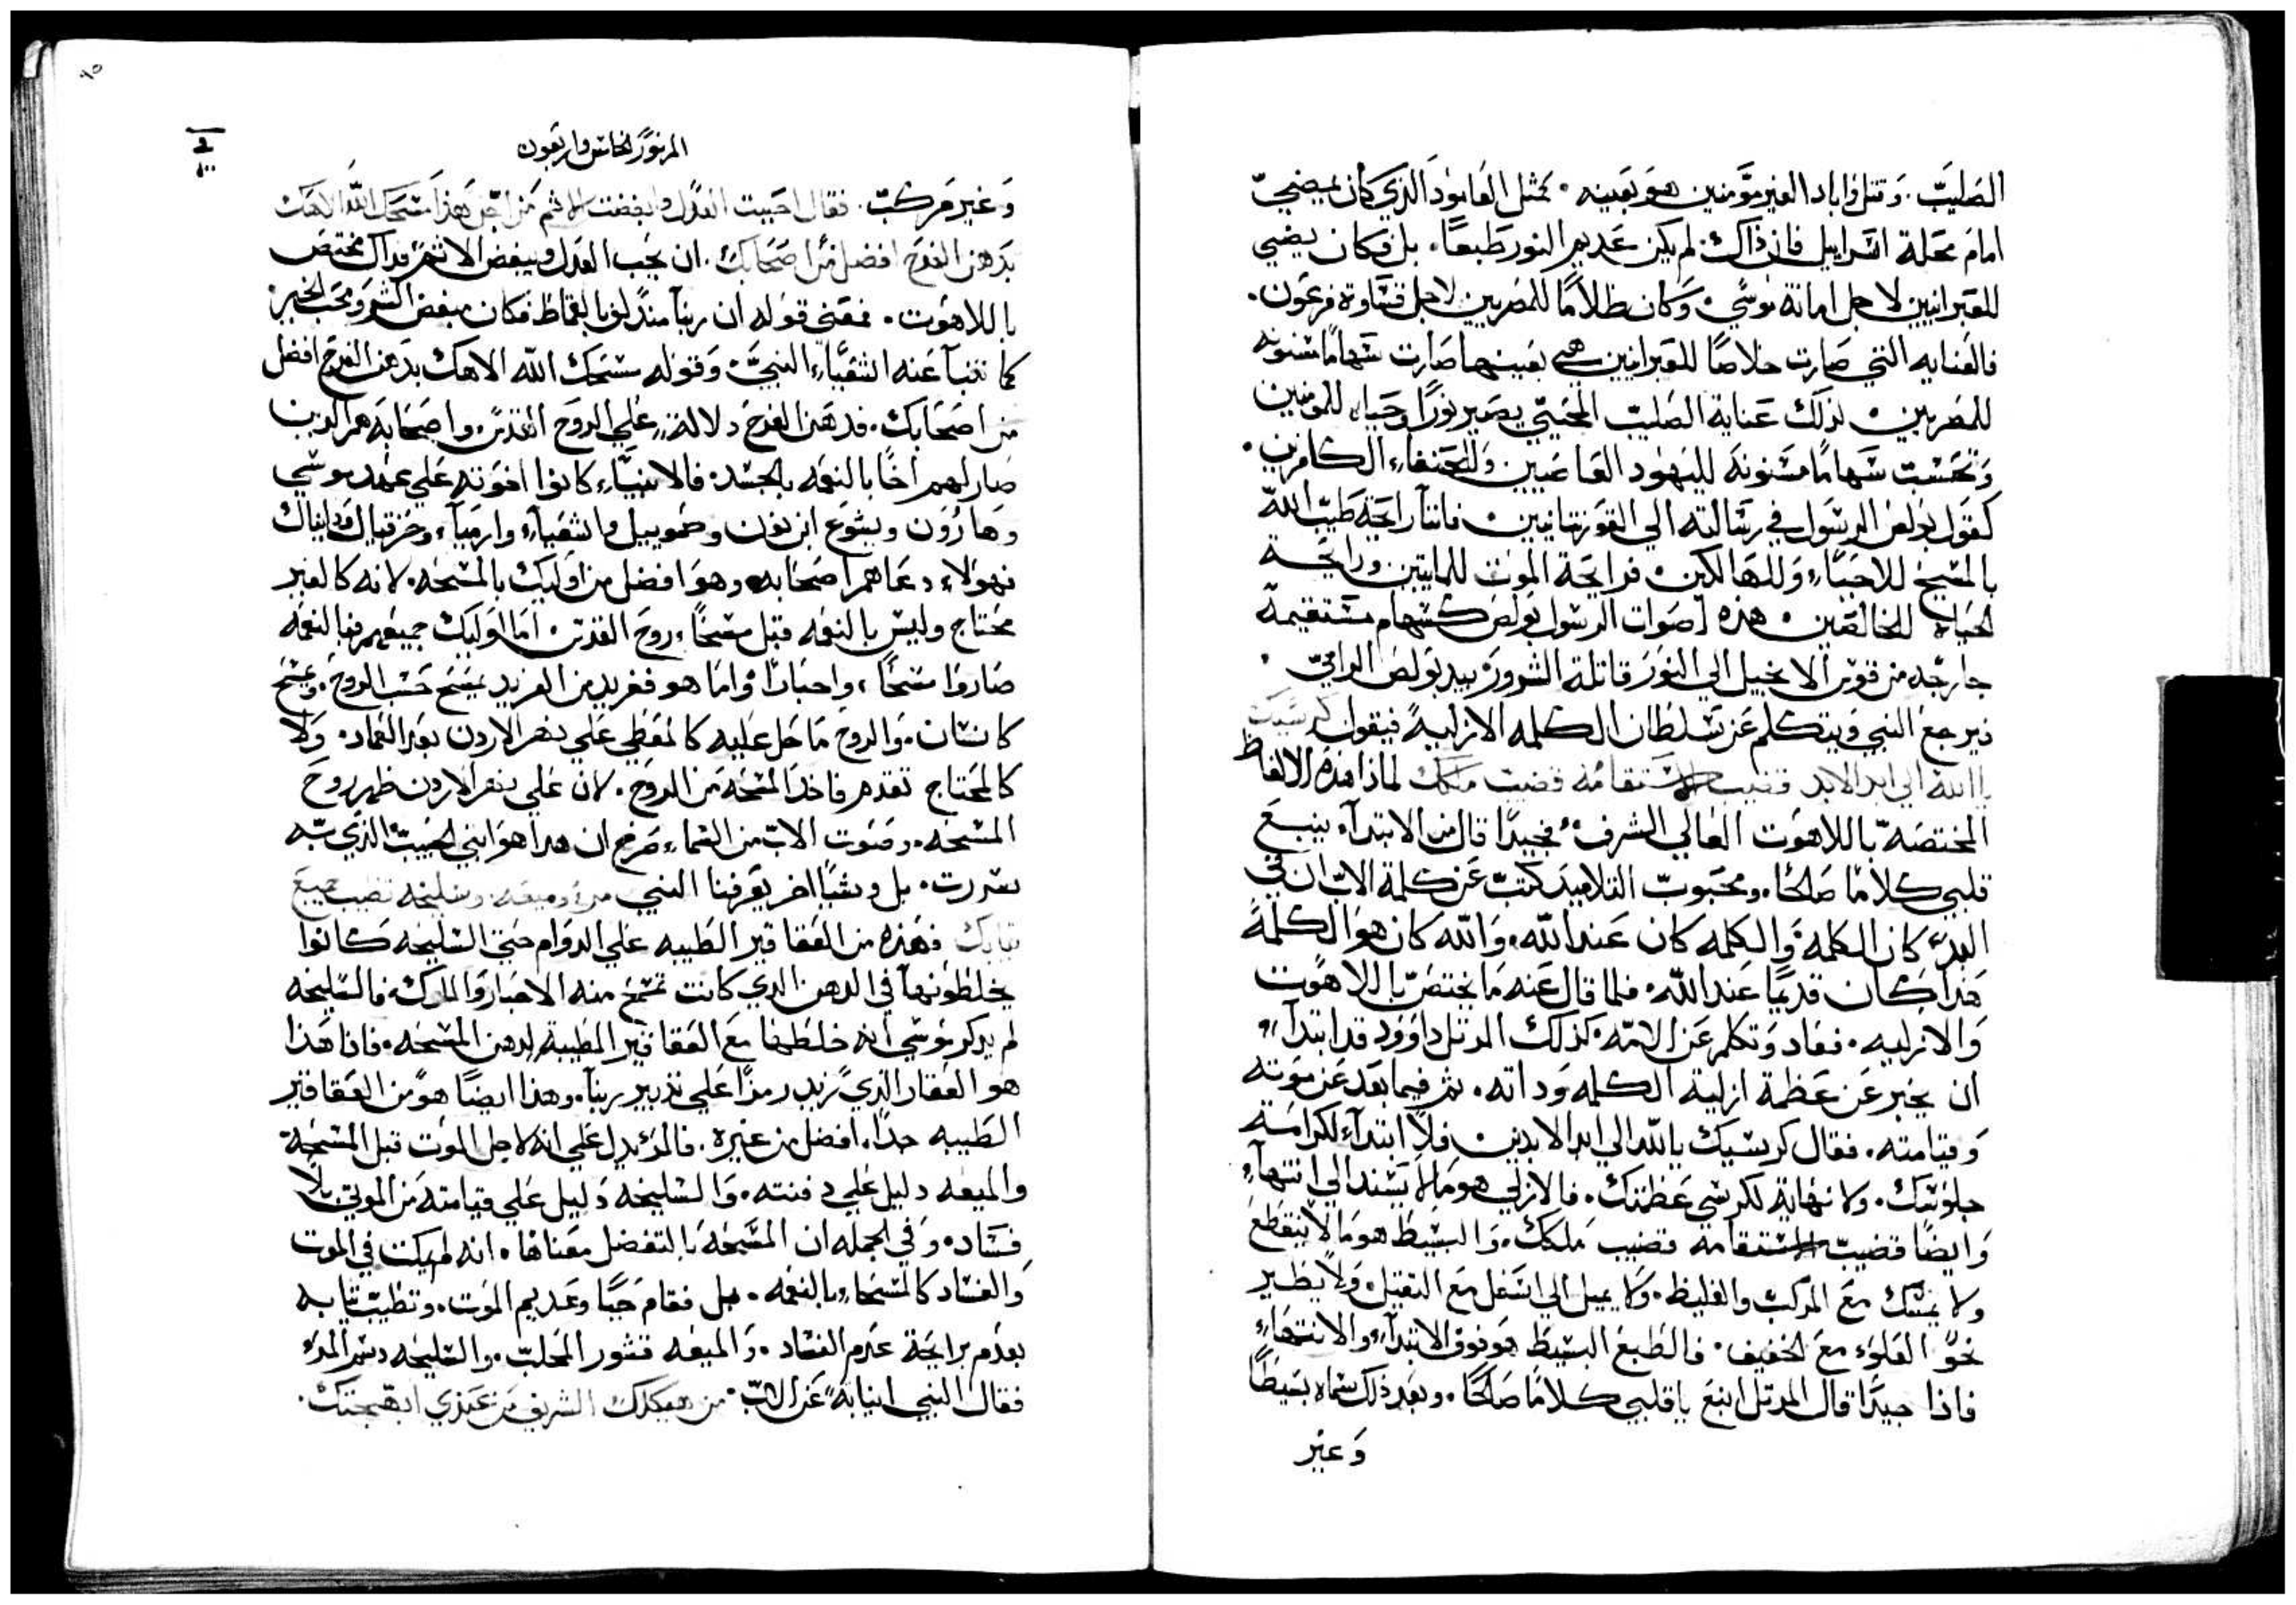 الصليب. وقتل واباد الغير مؤمنين هو بعينه. كمثل العامود الذي كان يضي
امام محلة اسراييل فان ذاك لم يكن عديم النور طبعًا. بل وكان يضيي
للعبرانيين لاجل امانة موسي. وكان ظلامًا للمصريين لاجل قساوة فرعون.
فالعنايه التي صارت خلاصًا للعبرانيين هي بعينها صارت سهامًا مسنونه
للمصريين. لذلك عناية الصليب المحيي يصير نورًا وحياه للمومنين
وتحسب سهامًا مسنونه لليهود الغاضبين وللحنفاء الكافرين.
كقول بولص الرسول في رسالته الي القورنتانيين. فاننا رايحة طيب الله
بالمسيح للاحياء وللهالكين. فرايحة الموت للمايتين ورايحة
الحياة للخالصين. هذه اصوات الرسول بولص كسهام مستقيمة
خارجه من قوس الانجيل الي النور قاتلة الشرور بيد بولص الرامي.
فيرجع النبي ويتكلم عن سلطان الكلمه الازلية فيقول كرسيك
يا الله الي ابد الابد قضيب الاستقامه قضيب ملكك لماذا هذه الالفاظ
المختصه باللاهوت العالي الشرف. فجيدًا قال من الابتداء ينبع
قلبي كلامًا صالحًا. ومحبوب التلاميد كتب عن كلمة الاب ان في
البدء كان الكلمة والكلمه كان عند الله. والله كان هو الكلمة
هذا كان قديمًا عند الله. فلما قال عنه ما يختص باللاهوت
والازليه. فعاد وتكلم عن الامه. كذلك المرتل داوود قد ابتداء
ان يخبر عن عظمة ازلية الكلمه وداته. ثم فيما بعد عن موته
وقيامته. فقال كرسيك يا الله الي ابد الابدين فلا ابتداء لكرامة
جلوسك. ولا نهاية لكرسي عظمتك. فالازلي هو ما لا يسند الي انتهاء
وايضًا قضيب الاستقامه قضيب ملكك. والبسيط هو ما لا ينقطع
ولا يمسك مع المركب والغليظ. ولا يميل الي اسفل مع الثقيل ولا يطير
نحو العلوء مع الخفيف. فالطبع البسيط هو فوق الابتداء والانتهاء
فاذا جيدًا قال المرتل انبع يا قلبي كلامًا صالحًا. وبعد ذلك سماه بسيطًا
وغير
المزمور الخامس واربعون
وغير مركب. فقال احببت العدل وابغضت الاثم من اجل هذا مسحك الله الاهك
بدهن الفرح افضل من اصحابك. ان يحب العدل ويبغض الاثم فداك مختص
باللاهوت. فمعني قوله ان ربنا منذ لف بالقماط فكان مبغض الشر ومحب الخير.
كما تنبا عنه اشعياء النبي وقوله مسحك الله الاهك بدهن الفرح افضل
من اصحابك. فدهن الفرح دلالة علي الروح القدس. واصحابه هم الدين
صار لهم اخًا بالنعمه بالجسد. فالانبياء كانوا اخوته علي عهد موسي
وهارون ويشوع ابن نون وصموييل واشعياء وارمياء وحزقيال ودانيال
فهولاء دعاهم اصحابه. وهو افضل من اوليك بالمسحه. لانه كالغير
محتاج وليس بالنعمه قبل مسحًا روح القدس. اما اوليك جميعهم فبالنعمه
صاروا مسحًا، واحبارًا. واما هو ففريد من الفريد يمسح حسب الروح. ومسح
كانسان. والروح ما حل عليه كالمعطي علي نهر الاردن بعد العماد. ولا
كالمحتاج تقدم فاخذ المسحة من الروح. لان علي نهر الاردن ظهر روح
المسحه. وصوت الاب من السماء صرخ ان هدا هو ابني الحبيب الذي به
سررت. بل وشيا اخر يعرفنا النبي مرء وميعه وسليخه تطيب جميع
تيابك فهذه من العقاقير الطيبه علي الدوام حتي السليخه كانوا
يخلطونها في الدهن الدي كانت تمسح منه الاحبار والملوك. فالسليخه
لم يدكر موسي انه خلطها مع العقاقير الطيبة لدهن المسحه. فاذا هذا
هو العقار الذي تزيد رمزًا علي تدبير ربنا. وهذا ايضًا هو من العقاقير
الطيبه جدًا. افضل من غيره. فالمر يدل علي انه لاجل الموت قبل المسحة
والميعه دليل علي دفنته. والسليخه دليل علي قيامته من الموتي بلا
فساد. وفي الجمله ان المسحه بالتفضل معناها. انه لم يمكت في الموت
والفساد كالمسحاء بالنعمه. بل فقام حيًا وعديم الموت. وتطيب تيابه
بعدم برايحة عدم الفساد. والميعه قشور المحلب. والسليخه دسم المرء
فقال النبي انيابة عن الاب. من هيكلك الشريف من عندي ابهجتك.